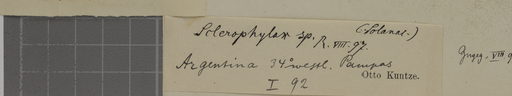 Sclerophylax sp. (Solanac.)
R. VIII. 97.
Argentina 34° westl. Pampas
Otto Kuntze.
I 92